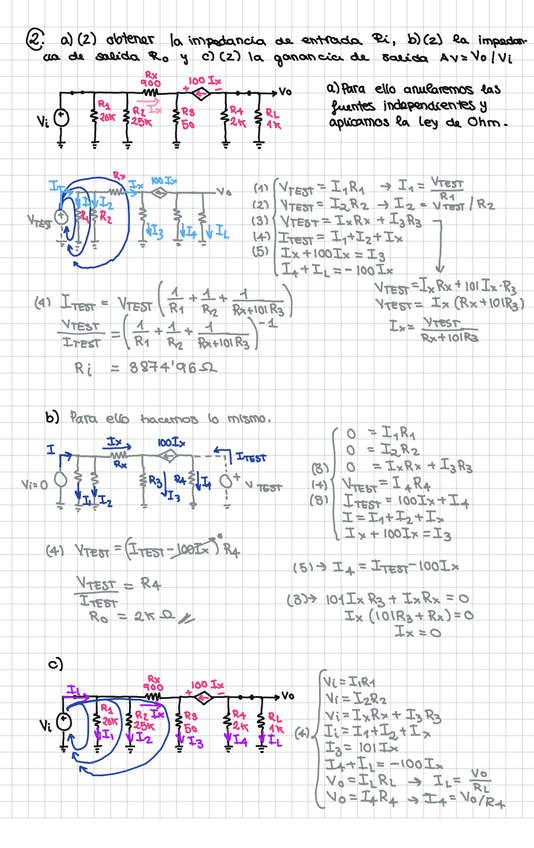 2. a) (2) obtener la impedancia de entrada Ri, b) (2) la impedan-
cia de salida Ro y c) (2) la ganancia de salida Av = Vo/Vi
Rx
900
100 Ix
+
-
Vo
Ix
Vi
R1
20K
R2
25K
R3
50
R4
2K
RL
1K
a) Para ello anularemos las
fuentes independientes y
aplicamos la ley de Ohm.
Rx
Ix
100 Ix
Vo
I1
I2
R1
R2
VTEST
I3
I4
IL
(1) VTEST = I1R1 → I1 = VTEST / R1
(2) VTEST = I2R2 → I2 = VTEST / R2
(3) VTEST = IxRx + I3R3
(4) ITEST = I1+I2+Ix
(5) Ix + 100Ix = I3
I4 + IL = -100Ix
VTEST = IxRx + 101Ix·R3
VTEST = Ix (Rx + 101R3)
Ix = VTEST / Rx+101R3
(4) ITEST = VTEST (1/R1 + 1/R2 + 1/Rx+101R3)
VTEST / ITEST = (1/R1 + 1/R2 + 1/Rx+101R3)^-1
Ri = 3874'96 Ω
b) Para ello hacemos lo mismo.
I
Ix
Rx
100Ix
ITEST
Vi=0
I1
I2
R3
I3
R4
I4
+
VTEST
0 = I1R1
0 = I2R2
(3) 0 = IxRx + I3R3
(4) VTEST = I4R4
(5) ITEST = 100Ix + I4
I = I1+I2+Ix
Ix + 100Ix = I3
(4) VTEST = (ITEST - 100Ix) R4
(5) → I4 = ITEST - 100Ix
VTEST / ITEST = R4
Ro = 2K Ω
(3) → 101Ix R3 + IxRx = 0
Ix (101R3 + Rx) = 0
Ix = 0
c)
Ii
Rx
900
+ 100 Ix -
Vo
Ix
Vi
R1
20K
R2
25K
R3
50
R4
2K
RL
1K
I1
I2
I3
I4
IL
Vi = I1R1
Vi = I2R2
Vi = IxRx + I3R3
(4) Ii = I1+I2+Ix
I3 = 101Ix
I4+IL = -100Ix
Vo = ILRL → IL = Vo / RL
Vo = I4R4 → I4 = Vo/R4